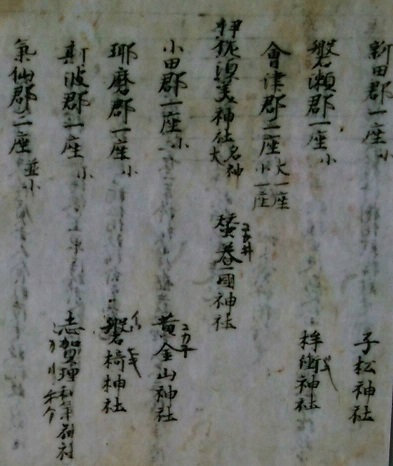 新田郡一座小 子松神社
磐瀬郡一座小 桙衝神社
會津郡二座大一座小一座
伊佐須美神社名神大 蚕養國神社
小田郡一座小 黄金山神社
耶磨郡一座小 磐椅神社
斯波郡一座小 志賀理和氣神社
氣仙郡三座並小